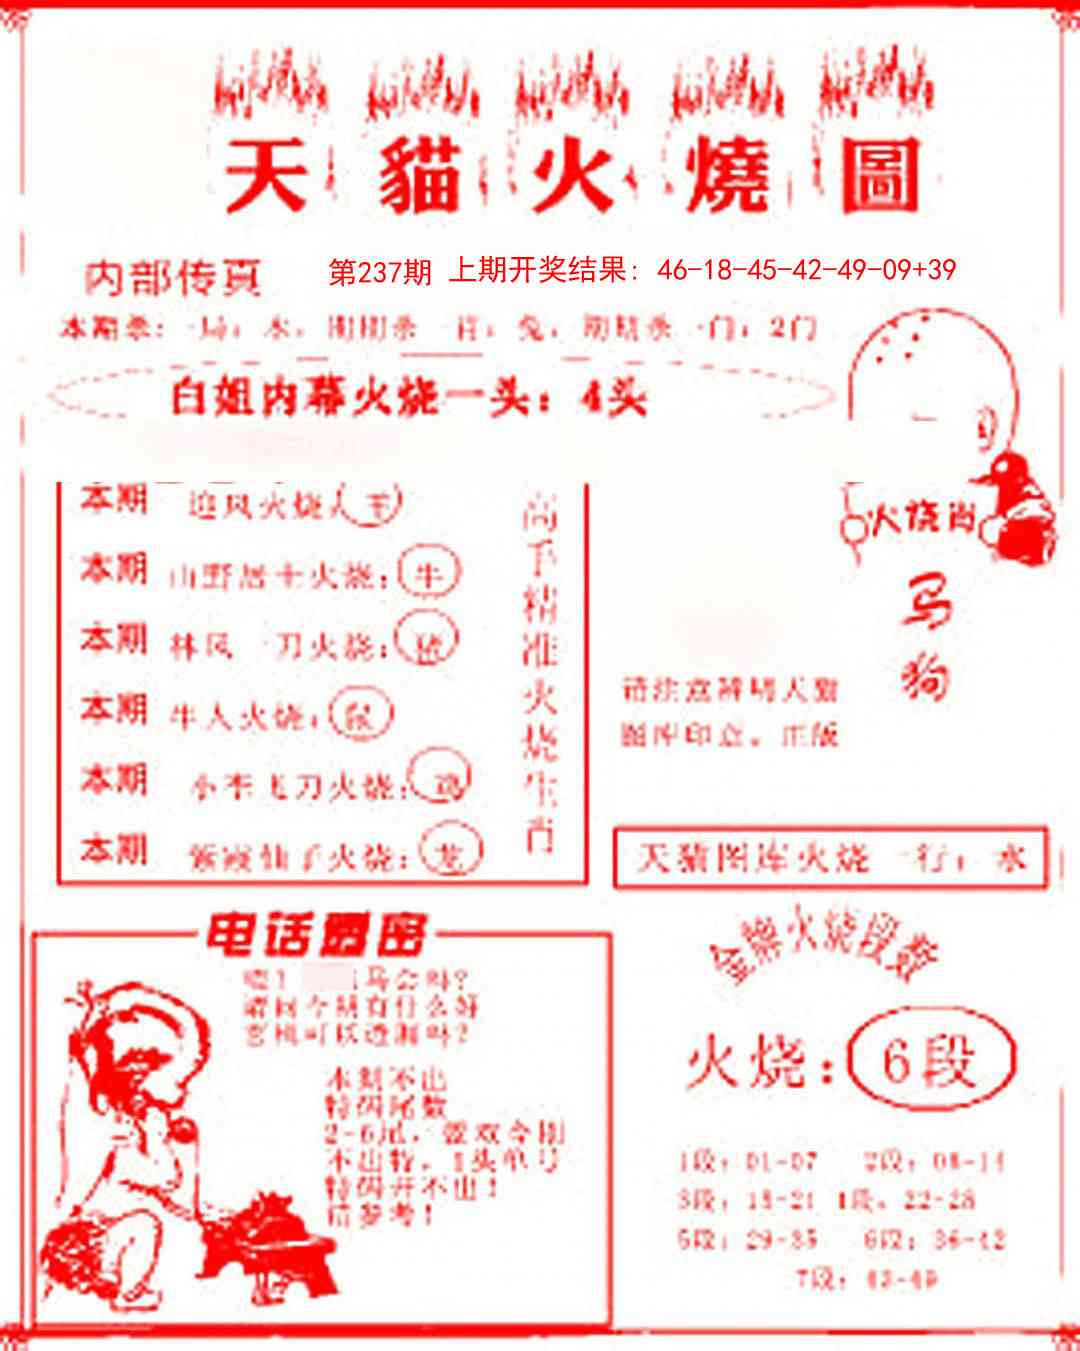 天貓火燒圖
内部传真 第237期 上期开奖结果: 46-18-45-42-49-09+39
本期杀:一局:水,期期杀一肖:兔,期期杀一门:2门
白姐内幕火烧一头:4头
本期 迎风火烧 羊
本期 山野居士火烧:牛
本期 林风一刀火烧:猪
本期 牛人火烧:鼠
本期 小李飞刀火烧:鸡
本期 紫霞仙子火烧:龙
高手精准火烧生肖
火烧肖
马
狗
请注意辨明天猫
图库印章。正版
天猫图库火烧一行:水
电话泄密
喂! 马会吗?
请问今期有什么好
玄机可以透漏吗?
本期不出
特码尾数
2-6尾,
不出特,1头单号
特码开不出!
请参考!
金牌火烧段数
火烧:6段
1段:01-07 2段:08-14
3段:15-21 4段:22-28
5段:29-35 6段:36-42
7段:43-49